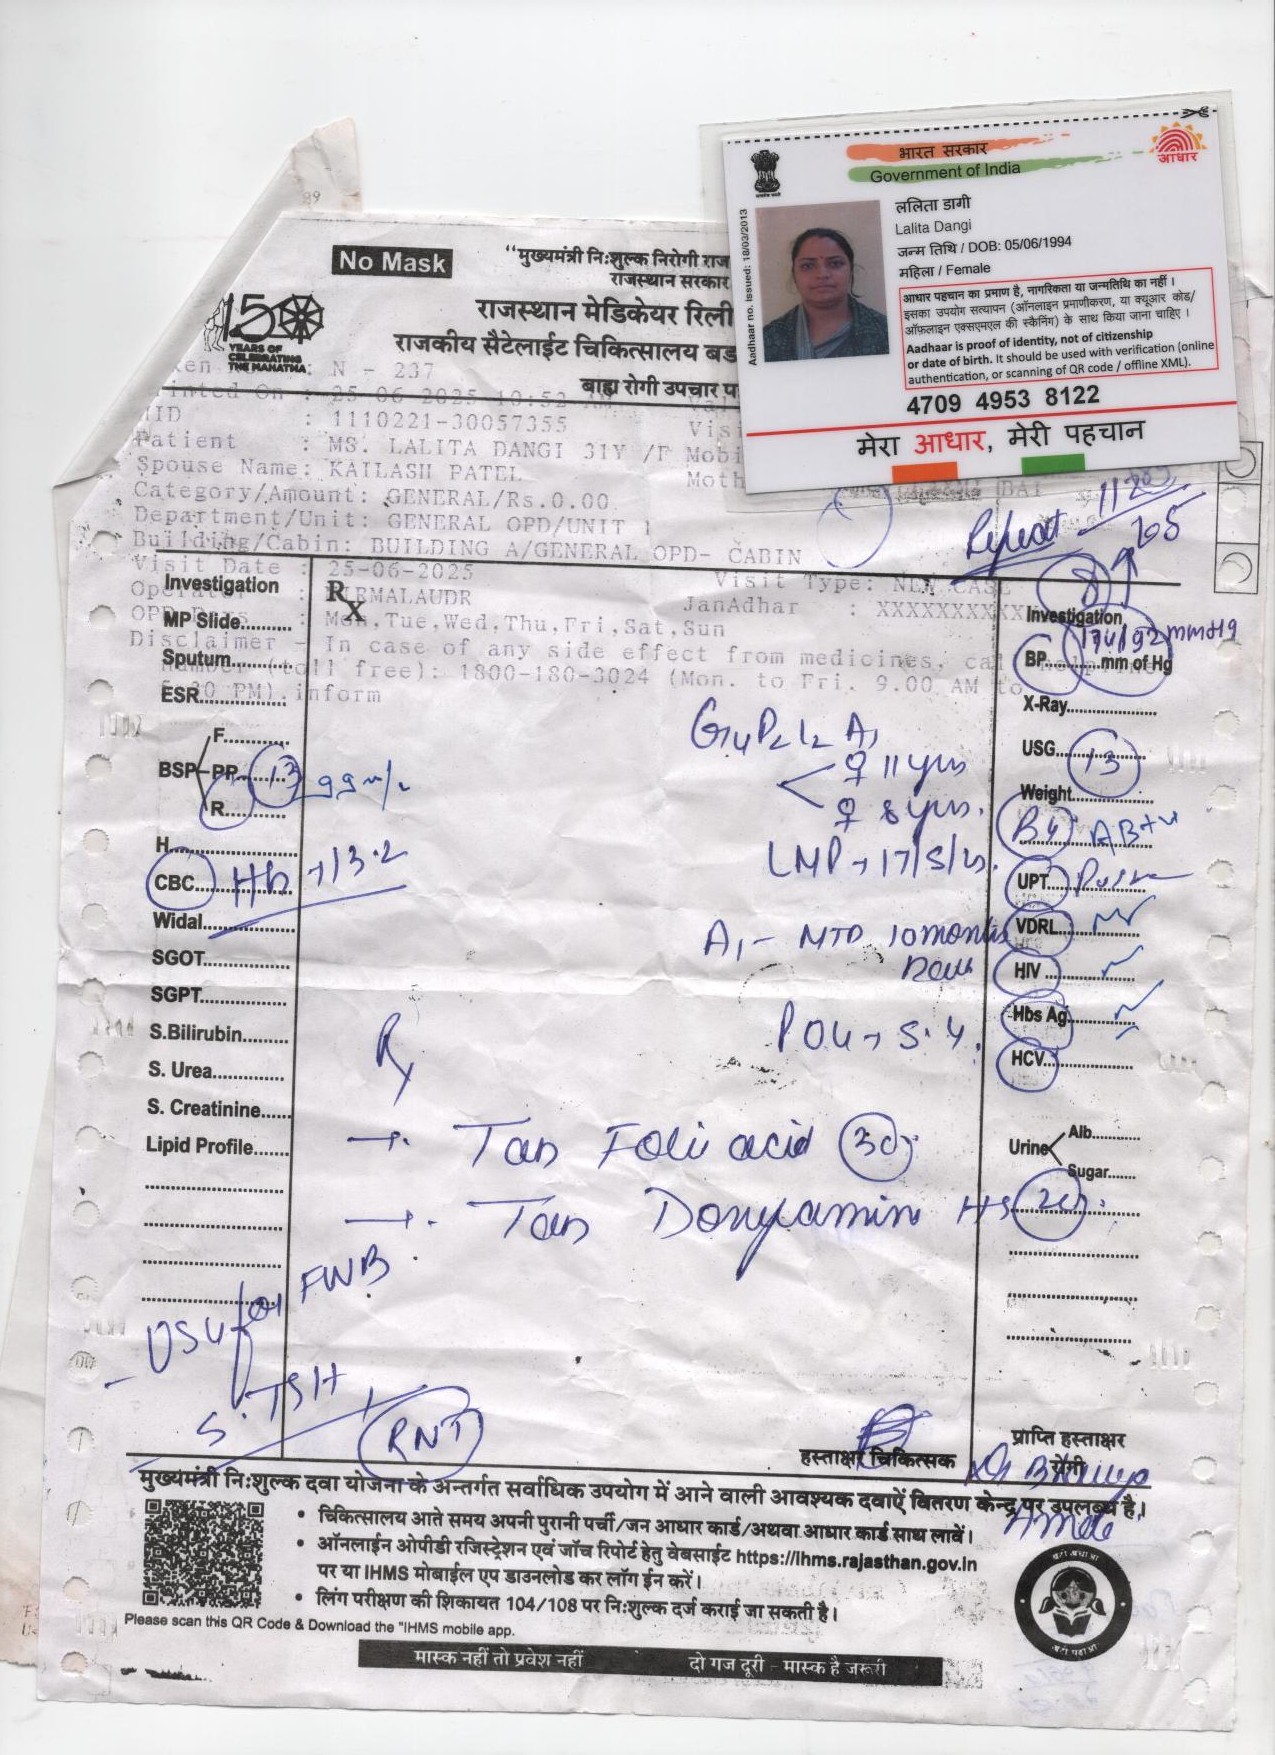 भारत सरकार
Government of India
आधार
Aadhaar no. issued: 18/03/2013
ललिता डागी
Lalita Dangi
जन्म तिथि / DOB: 05/06/1994
महिला / Female
आधार पहचान का प्रमाण है, नागरिकता या जन्मतिथि का नहीं ।
इसका उपयोग सत्यापन (ऑनलाइन प्रमाणीकरण, या क्यूआर कोड/
ऑफ़लाइन एक्सएमएल की स्कैनिंग) के साथ किया जाना चाहिए ।
Aadhaar is proof of identity, not of citizenship
or date of birth. It should be used with verification (online
authentication, or scanning of QR code / offline XML).
4709 4953 8122
मेरा आधार, मेरी पहचान
No Mask
“मुख्यमंत्री निःशुल्क निरोगी राज
राजस्थान सरकार
राजस्थान मेडिकेयर रिली
राजकीय सैटेलाईट चिकित्सालय बड
बाह्य रोगी उपचार प
150
YEARS OF
CELEBRATING
THE MAHATMA
ken : N - 237
inted On : 25-06-2025 10:52 AM
: 1110221-30057355 Visi
Patient : MS. LALITA DANGI 31Y /F Mobi
Spouse Name: KAILASH PATEL Moth
Category/Amount: GENERAL/Rs.0.00
Department/Unit: GENERAL OPD/UNIT 1
Building/Cabin: BUILDING A/GENERAL OPD- CABIN
Visit Date : 25-06-2025 Visit Type: NEW CASE
JanAdhar : XXXXXXXXXX
OPD Days : Mon,Tue,Wed,Thu,Fri,Sat,Sun
Disclaimer - In case of any side effect from medicines, call Helpline
number (toll free): 1800-180-3024 (Mon. to Fri. 9.00 AM to
5.30 PM) inform
Repeat - 112
105
8
Investigation
Rx
MP Slide
Sputum
ESR
BSP F
PP 13
R 99 m/.
H
CBC Hb → 13.2
Widal
SGOT
SGPT
S.Bilirubin
S. Urea
S. Creatinine
Lipid Profile
G4P2L2A1
♀ 11 yrs
♀ 8 yrs.
LMP → 17/5/25.
A1 - MTP 10 months
Back
Investigation
BP 134/92 mmHg mm of Hg
X-Ray
USG 13
Weight
AB+ve
UPT
VDRL
HIV
Hbs Ag
HCV
Urine Alb.
Sugar
Rx
→ Tab Folic acid 30
→ Tab Doxylamine HS 20
- USG for FWB
S. TSH
RNT
हस्ताक्षर चिकित्सक
प्राप्ति हस्ताक्षर
रोगी
मुख्यमंत्री निःशुल्क दवा योजना के अन्तर्गत सर्वाधिक उपयोग में आने वाली आवश्यक दवाऐं वितरण केन्द्र पर उपलब्ध है।
• चिकित्सालय आते समय अपनी पुरानी पर्ची/जन आधार कार्ड/अथवा आधार कार्ड साथ लावें।
• ऑनलाईन ओपीडी रजिस्ट्रेशन एवं जॉच रिपोर्ट हेतु वेबसाईट https://ihms.rajasthan.gov.in
पर या IHMS मोबाईल एप डाउनलोड कर लॉग ईन करें।
• लिंग परीक्षण की शिकायत 104/108 पर निःशुल्क दर्ज कराई जा सकती है।
Please scan this QR Code & Download the "IHMS mobile app.
मास्क नहीं तो प्रवेश नहीं दो गज दूरी - मास्क है जरूरी